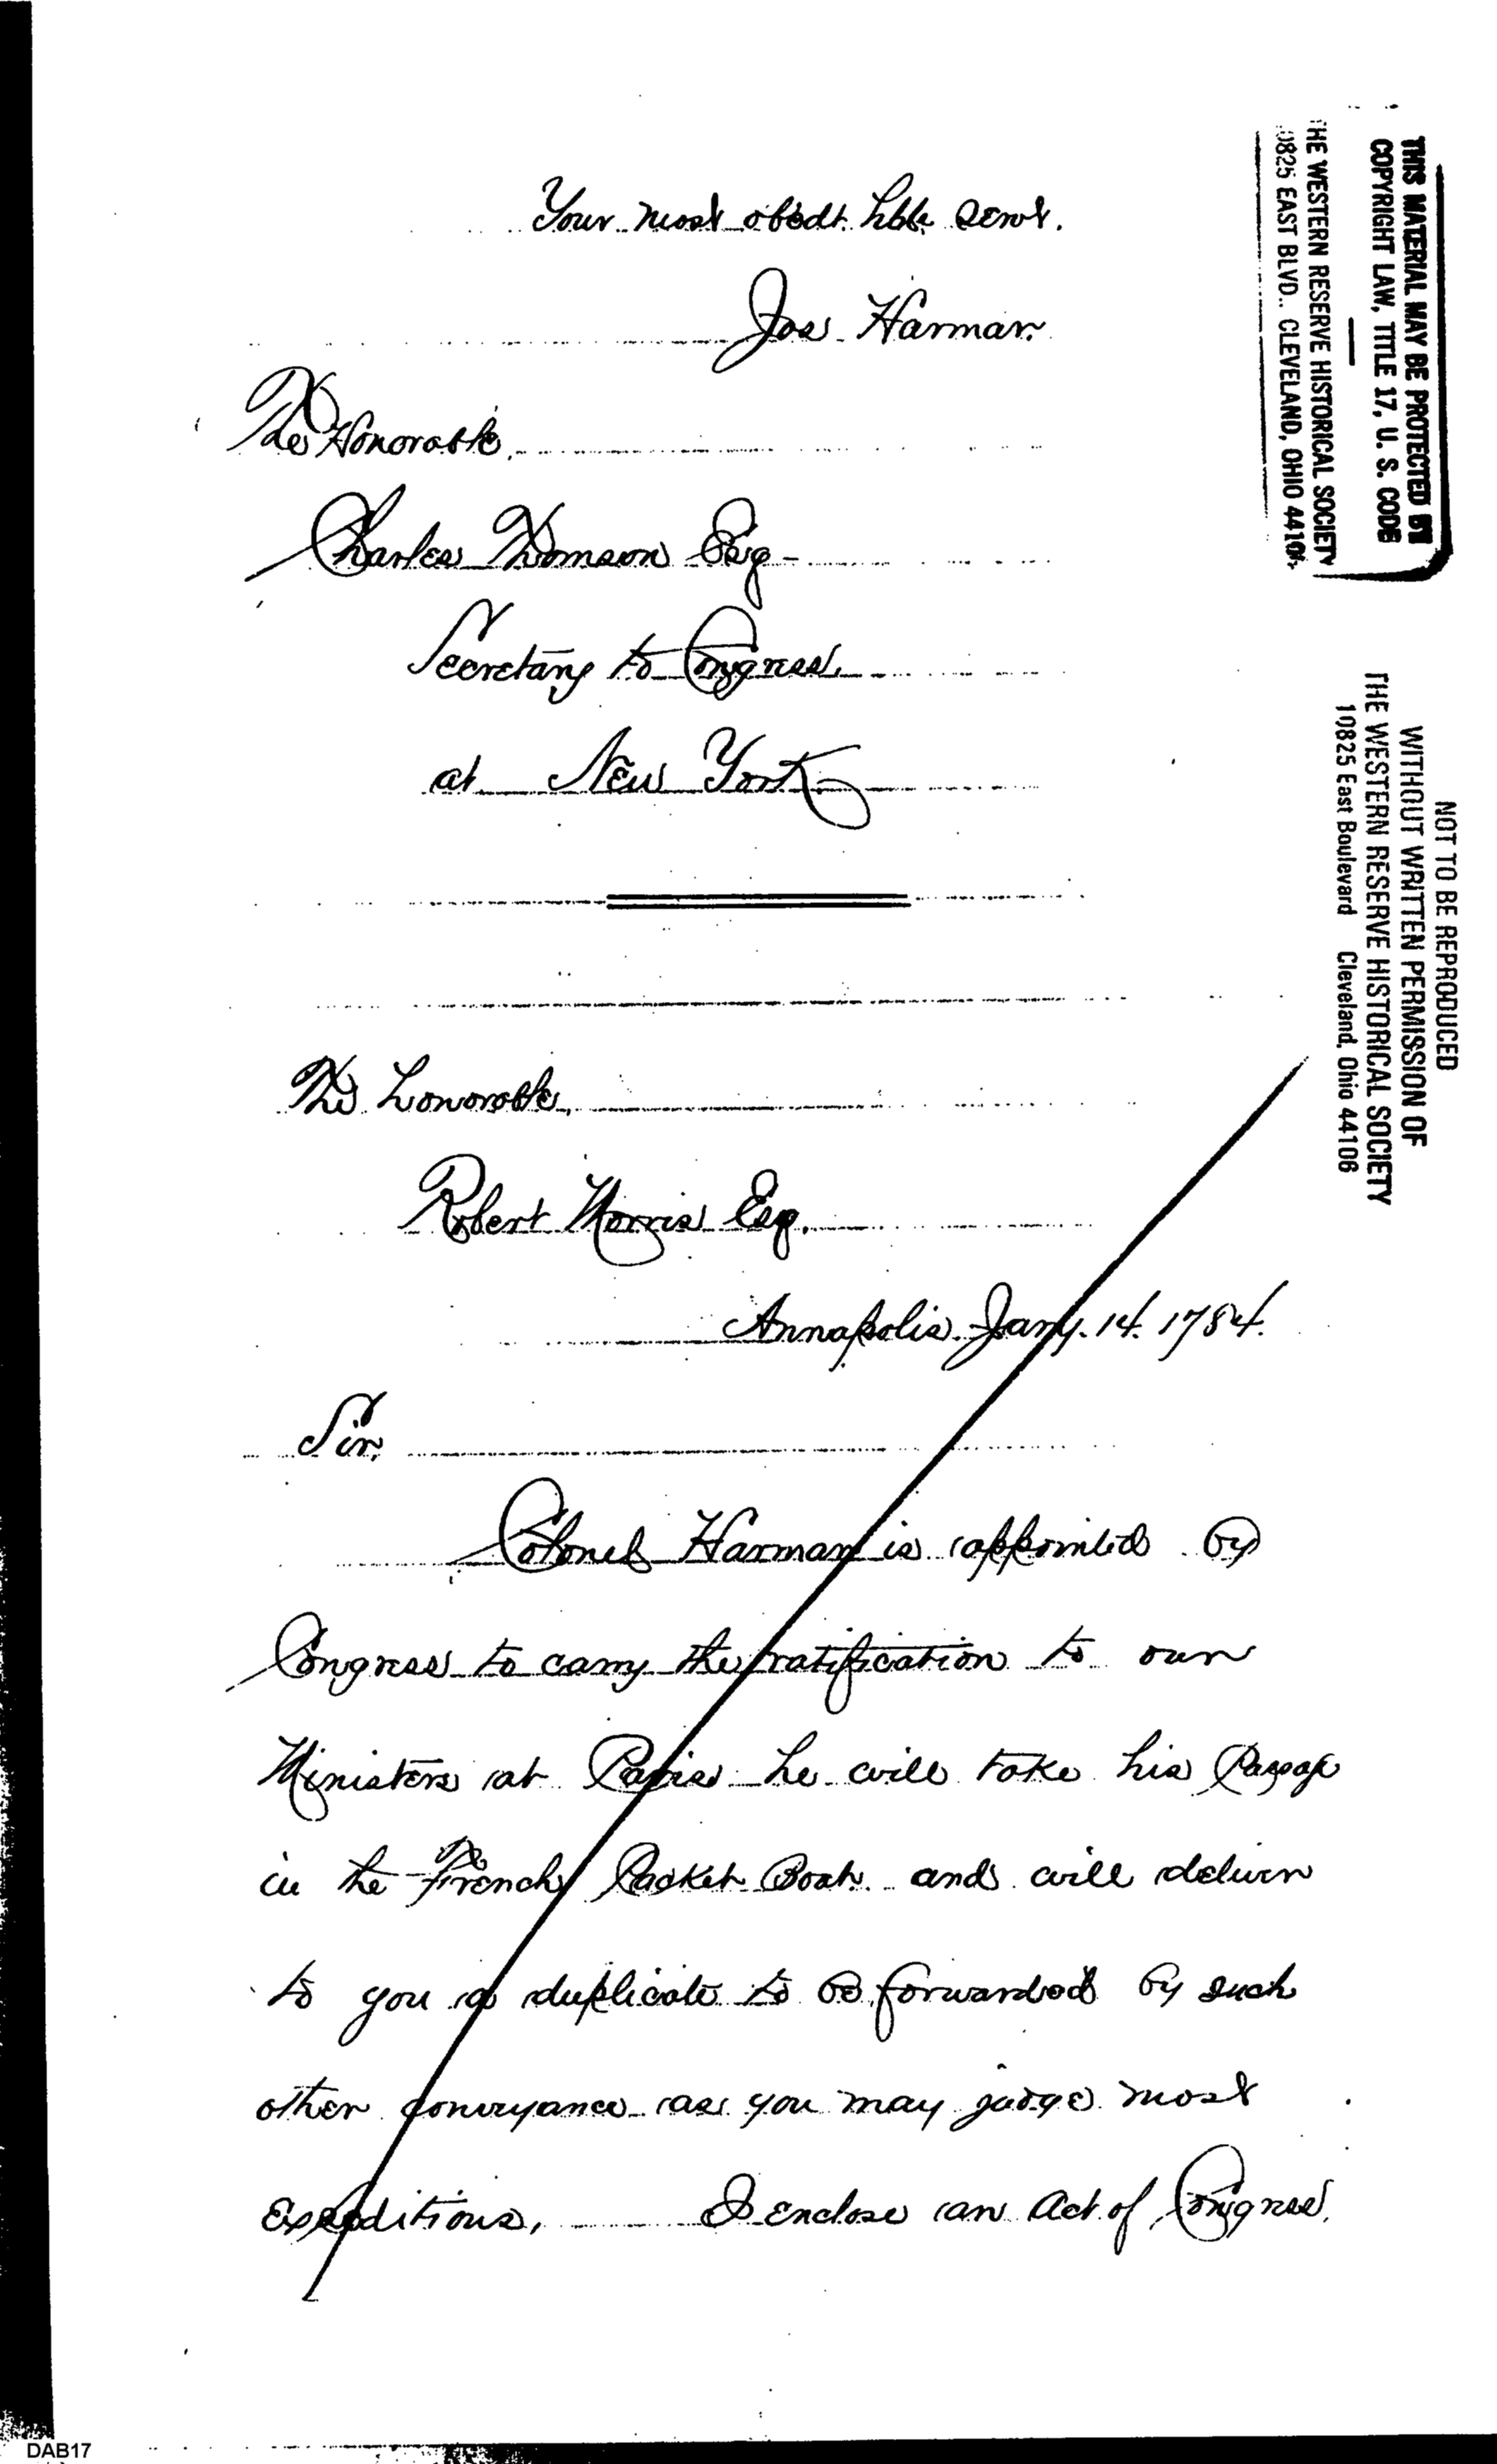 Your most obedt. hble servt.
Jos Harmar.
The Honorable
Charles Thomson Esq -
Secretary to Congress
at New York
The honorable
Robert Morris Esq.
Annapolis Jany. 14. 1784.
Sir,
Colonel Harmar is appointed by
Congress to carry the ratification to our
Ministers at Paris he will take his Passage
in the French Packet Boat and will deliver
to you a duplicate to be forwarded by such
other conveyance as you may judge most
expeditious, I enclose an Act of Congress,
THIS MATERIAL MAY BE PROTECTED BY
COPYRIGHT LAW, TITLE 17, U. S. CODE
THE WESTERN RESERVE HISTORICAL SOCIETY
10825 EAST BLVD., CLEVELAND, OHIO 44106
NOT TO BE REPRODUCED
WITHOUT WRITTEN PERMISSION OF
THE WESTERN RESERVE HISTORICAL SOCIETY
10825 East Boulevard Cleveland, Ohio 44106
DAB17